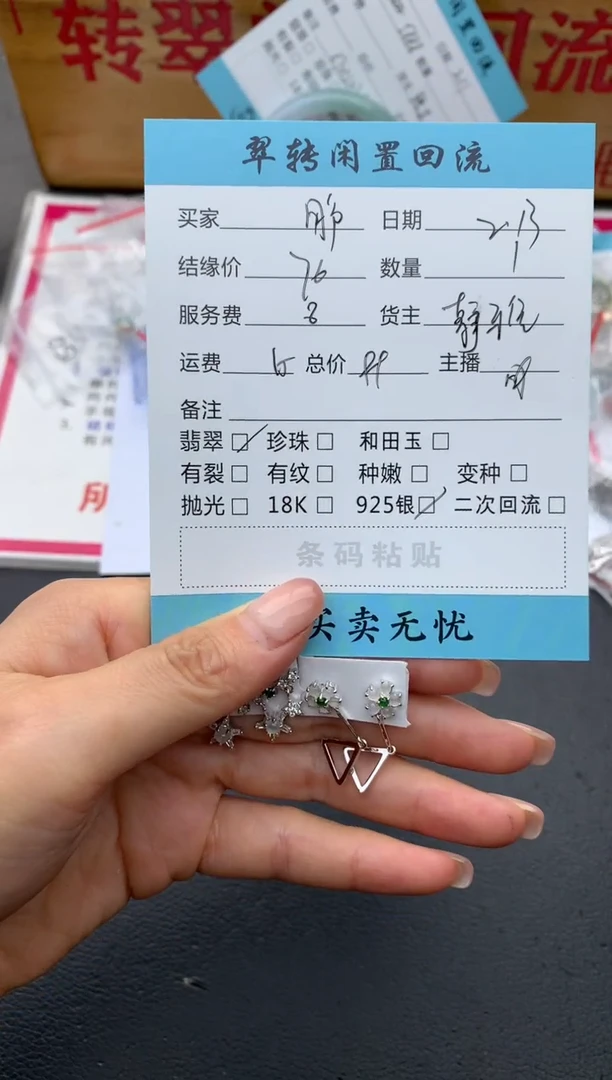 转翠
回流
闲置回流
翠转闲置回流
买家 日期 2.13
结缘价 76 数量 1
服务费 8 货主 静雅
运费 6 总价 主播
备注
翡翠☑ 珍珠□ 和田玉□
有裂□ 有纹□ 种嫩□ 变种□
抛光□ 18K□ 925银☑ 二次回流□
条码粘贴
买卖无忧
所